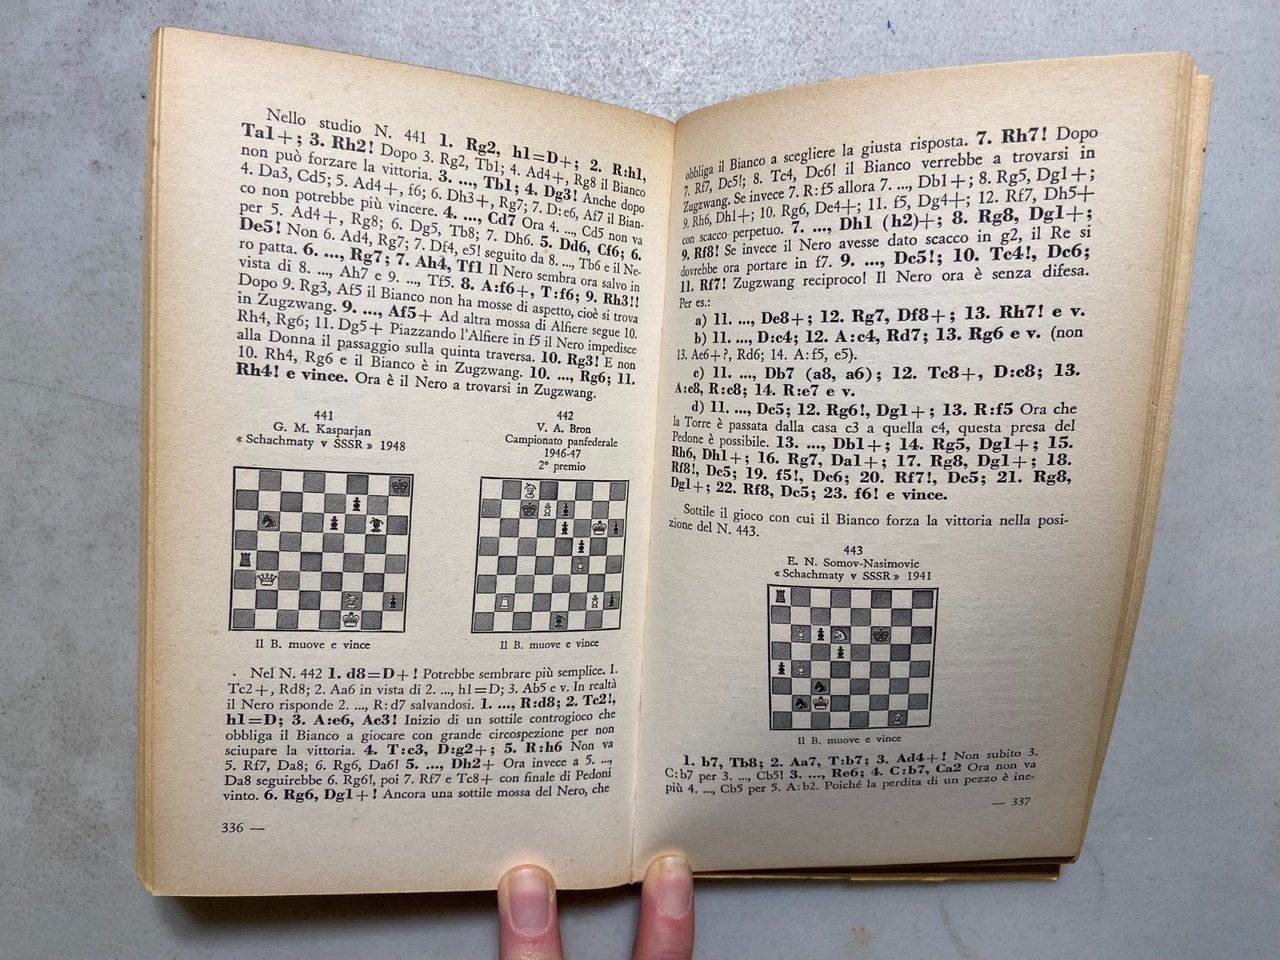 Nello studio N. 441 1. Rg2, h1=D+; 2. R:h1,
Ta1+; 3. Rh2! Dopo 3. Rg2, Tb1; 4. Ad4+, Rg8 il Bianco
non può forzare la vittoria. 3. ..., Tb1; 4. Dg3! Anche dopo
4. Da3, Cd5; 5. Ad4+, f6; 6. Dh3+, Rg7; 7. D:e6, Af7 il Bian-
co non potrebbe più vincere. 4. ..., Cd7 Ora 4. ..., Cd5 non va
per 5. Ad4+, Rg8; 6. Dg5, Tb8; 7. Dh6. 5. Dd6, Cf6; 6.
De5! Non 6. Ad4, Rg7; 7. Df4, e5! seguito da 8. ..., Tb6 e il Ne-
ro patta. 6. ..., Rg7; 7. Ah4, Tf1 Il Nero sembra ora salvo in
vista di 8. ..., Ah7 e 9. ..., Tf5. 8. A:f6+, T:f6; 9. Rh3!!
Dopo 9. Rg3, Af5 il Bianco non ha mosse di aspetto, cioè si trova
in Zugzwang. 9. ..., Af5+ Ad altra mossa di Alfiere segue 10.
Rh4, Rg6; 11. Dg5+ Piazzando l'Alfiere in f5 il Nero impedisce
alla Donna il passaggio sulla quinta traversa. 10. Rg3! E non
10. Rh4, Rg6 e il Bianco è in Zugzwang. 10. ..., Rg6; 11.
Rh4! e vince. Ora è il Nero a trovarsi in Zugzwang.
441
G. M. Kasparjan
« Schachmaty v SSSR » 1948
Il B. muove e vince
442
V. A. Bron
Campionato panfederale
1946-47
2° premio
Il B. muove e vince
Nel N. 442 1. d8=D+! Potrebbe sembrare più semplice. 1.
Tc2+, Rd8; 2. Aa6 in vista di 2. ..., h1=D; 3. Ab5 e v. In realtà
il Nero risponde 2. ..., R:d7 salvandosi. 1. ..., R:d8; 2. Tc2!,
h1=D; 3. A:e6, Ac3! Inizio di un sottile controgioco che
obbliga il Bianco a giocare con grande circospezione per non
sciupare la vittoria. 4. T:c3, D:g2+; 5. R:h6 Non va
5. Rf7, Da8; 6. Rg6, Da6! 5. ..., Dh2+ Ora invece a 5. ...,
Da8 seguirebbe 6. Rg6!, poi 7. Rf7 e Tc8+ con finale di Pedoni
vinto. 6. Rg6, Dg1+! Ancora una sottile mossa del Nero, che
336 —
obbliga il Bianco a scegliere la giusta risposta. 7. Rh7! Dopo
7. Rf7, Dc5!; 8. Tc4, Dc6! il Bianco verrebbe a trovarsi in
Zugzwang. Se invece 7. R:f5 allora 7. ..., Db1+; 8. Rg5, Dg1+;
9. Rh6, Dh1+; 10. Rg6, De4+; 11. f5, Dg4+; 12. Rf7, Dh5+
con scacco perpetuo. 7. ..., Dh1 (h2)+; 8. Rg8, Dg1+;
9. Rf8! Se invece il Nero avesse dato scacco in g2, il Re si
dovrebbe ora portare in f7. 9. ..., Dc5!; 10. Tc4!, Dc6;
11. Rf7! Zugzwang reciproco! Il Nero ora è senza difesa.
Per es.:
a) 11. ..., De8+; 12. Rg7, Df8+; 13. Rh7! e v.
b) 11. ..., D:c4; 12. A:c4, Rd7; 13. Rg6 e v. (non
13. Ae6+?, Rd6; 14. A:f5, e5).
c) 11. ..., Db7 (a8, a6); 12. Tc8+, D:c8; 13.
A:c8, R:c8; 14. R:e7 e v.
d) 11. ..., Dc5; 12. Rg6!, Dg1+; 13. R:f5 Ora che
la Torre è passata dalla casa c3 a quella c4, questa presa del
Pedone è possibile. 13. ..., Db1+; 14. Rg5, Dg1+; 15.
Rh6, Dh1+; 16. Rg7, Da1+; 17. Rg8, Dg1+; 18.
Rf8!, Dc5; 19. f5!, Dc6; 20. Rf7!, Dc5; 21. Rg8,
Dg1+; 22. Rf8, Dc5; 23. f6! e vince.
Sottile il gioco con cui il Bianco forza la vittoria nella posi-
zione del N. 443.
443
E. N. Somov-Nasimovic
« Schachmaty v SSSR » 1941
Il B. muove e vince
1. b7, Tb8; 2. Aa7, T:b7; 3. Ad4+! Non subito 3.
C:b7 per 3. ..., Cb5! 3. ..., Re6; 4. C:b7, Ca2 Ora non va
più 4. ..., Cb5 per 5. A:b2. Poiché la perdita di un pezzo è ine-
— 337